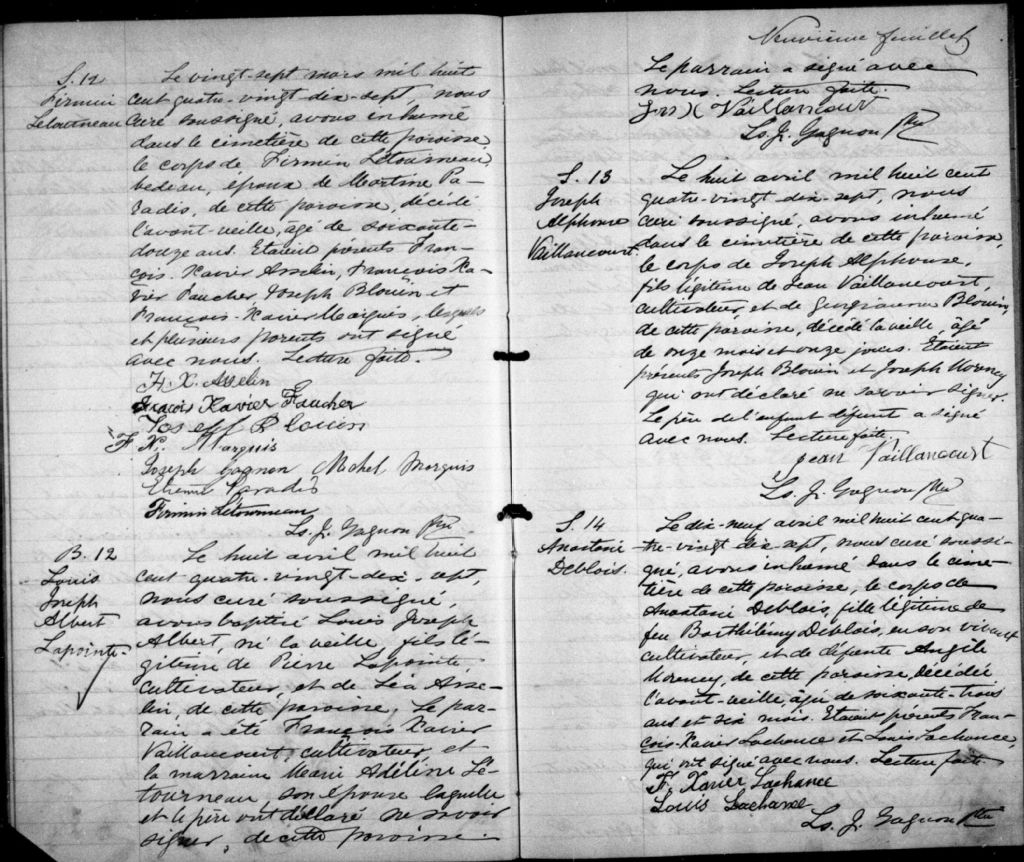 S. 12
Firmin
Letourneau
Le vingt-sept mars mil huit
cent quatre-vingt-dix-sept, nous
curé soussigné, avons inhumé
dans le cimetière de cette paroisse,
le corps de Firmin Létourneau,
bedeau, époux de Martine Pa-
radis, de cette paroisse, décédé
l'avant-veille, agé de soixante-
douze ans. Etaient présents Fran-
çois-Xavier Asselin, François Xa-
vier Faucher, Joseph Blouin et
François-Xavier Marquis, lesquels
et plusieurs parents ont signé
avec nous. Lecture faite.
F. X. Asselin
François Xavier Faucher
Joseph Blouin
F X. Marquis
Joseph Gagnon Michel Marquis
Etienne Paradis
Firmin Letourneau
Ls. J. Gagnon Ptre
B. 12
Louis
Joseph
Albert
Lapointe
Le huit avril mil huit
cent quatre-vingt-dix-sept,
nous curé soussigné,
avons baptisé Louis Joseph
Albert, né la veille, fils lé-
gitime de Pierre Lapointe,
cultivateur, et de Léa Asse-
lin, de cette paroisse. Le par-
rain a été François Xavier
Vaillancourt, cultivateur, et
la marraine Marie Adéline Lé-
tourneau, son épouse laquelle
et le père ont déclaré ne savoir
signer, de cette paroisse.
Neuvième feuillet
Le parrain a signé avec
nous. Lecture faite.
Frs X Vaillancourt
Ls. J. Gagnon Ptre
S. 13
Joseph
Alphonse
Vaillancourt.
Le huit avril mil huit cent
quatre-vingt dix-sept, nous
curé soussigné, avons inhumé
dans le cimetière de cette paroisse,
le corps de Joseph Alphonse,
fils légitime de Jean Vaillancourt,
cultivateur, et de Georgianna Blouin,
de cette paroisse, décédé la veille, âgé
de onze mois et onze jours. Etaient
présents Joseph Blouin et Joseph Morency
qui ont déclaré ne savoir signer.
Le père de l'enfant défunt a signé
avec nous. Lecture faite.
Jean Vaillancourt
Ls. J. Gagnon Ptre
S. 14
Anastasie
Deblois.
Le dix-neuf avril mil huit cent qua-
tre-vingt dix-sept, nous curé soussi-
gné, avons inhumé dans le cime-
tière de cette paroisse, le corps de
Anastasie Deblois, fille légitime de
feu Barthélémy Deblois, en son vivant
cultivateur, et de défunte Angèle
Morency, de cette paroisse, décédée
l'avant-veille, âgée de soixante-trois
ans et six mois. Etaient présents Fran-
çois-Xavier Lachance et Louis Lachance,
qui ont signé avec nous. Lecture faite
F. Xavier Lachance
Louis Lachance
Ls. J. Gagnon Ptre